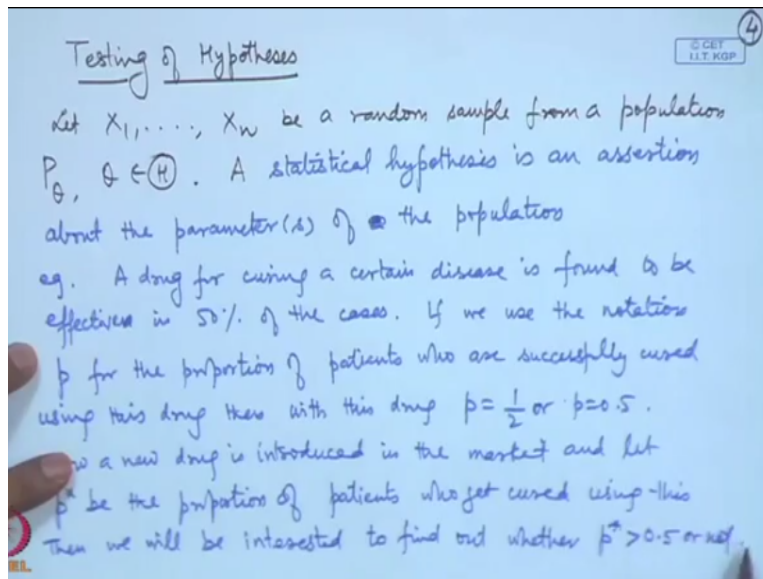 4
© CET
I.I.T. KGP
Testing of Hypotheses
Let X₁, ...., Xₙ be a random sample from a population
P_θ, θ ∈ Ⓗ. A statistical hypothesis is an assertion
about the parameter(s) of the population
eg. A drug for curing a certain disease is found to be
effective in 50% of the cases. If we use the notation
p for the proportion of patients who are successfully cured
using this drug then with this drug p = 1/2 or p = 0.5.
a new drug is introduced in the market and let
p* be the proportion of patients who get cured using this
Then we will be interested to find out whether p* > 0.5 or not.